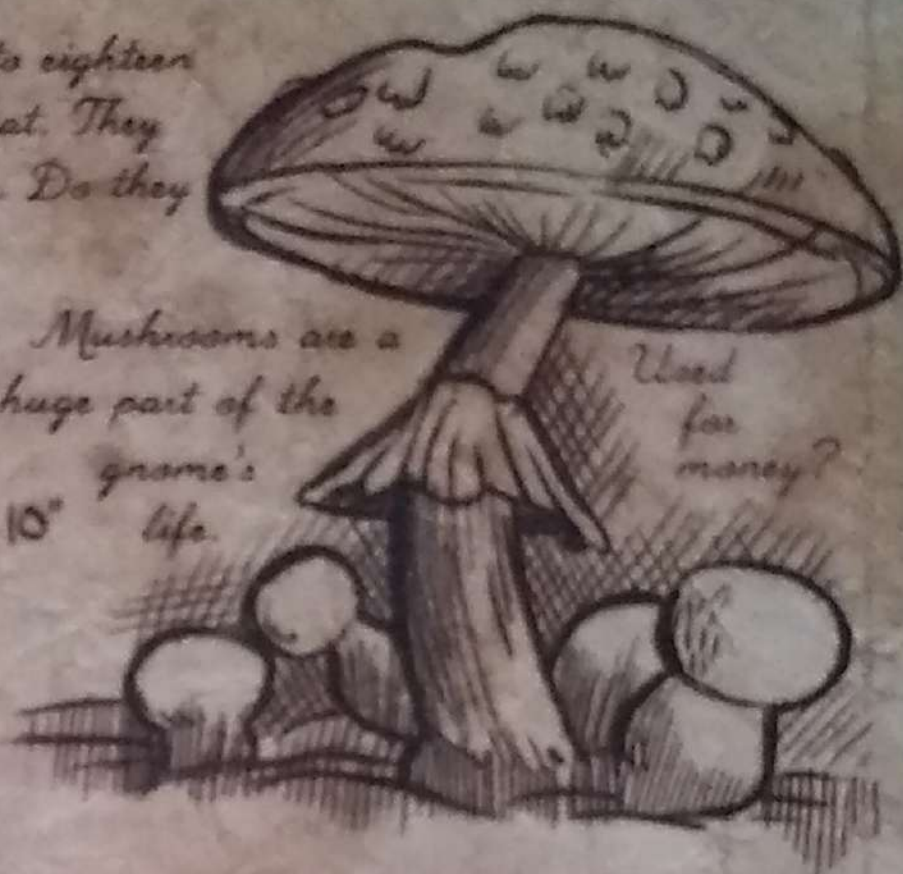 to eighteen
at. They
. Do they
Mushrooms are a
huge part of the
gnome's
10" life.
Used
for
money?